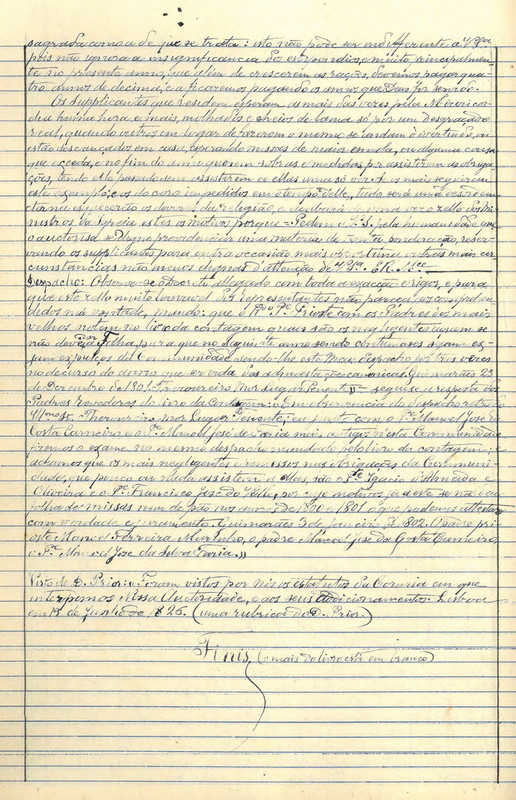 sagrada como a de que se trata: isto não pode ser indifferente a V. Sra
pois não ignora a insignificancia dos estipendios, e muito principalmente
no presente anno, que alem de crescerem as rações, devemos pagar qua-
tro annos de decima, e a ficaremos pagando os annos que Deus for servido.
Os Supplicantes que residem esperam as mais das vezes pelo Nero ri cor-
da hora, e mais, molhados e cheios de lama só por um desgraçado
real, quando outros em logar de fazerem o mesmo se andam divertindo, ou
estão descançados em casa, esperando missas de maior esmola, ou alguma coresa
que exceda, e no fim do anno querem sobras e medidas por assistirem as obriga-
ções, tendo elle passado sem assistirem a ellas uma só vez. Os mais seguirão
este exemplo, e os do coro impedidos em o tempo delle, tudo será uma desordem
de religião, e zello dos Mi-
nistros da Igreja estes os motivos porque = Pedem a V. S. pela humanidade que
o auctorisa se Digne providenciar uma materia de tanta ponderação, reser-
vando os supplicantes para outra occasião mais opportuna outras mais cir-
cunstancias não menos dignas d'attenção de V. Sra. E. R. Mce.
Despacho: Observe-se o decreto allegado com toda a exacção e rigor, e para
que este zello muito louvavel dos representantes não pareça os comprehen-
didos má vontade, mando: que o Rdo Pe Prioste com os Padres dos mais
velhos notem no livro da contagem quaes são os negligentes a quem se
não deveria Folha, para que no seguinte anno sendo continuosos sejam ex-
expulsos da Communidade sendo-lhe este meu despacho por tres vezes
no decurso do anno que servirão das admoestações canonicas. Guimarães 23
de Dezembro de 1801. Thesoureiro Mor Lugar Tenente = segue-se a resposta dos
Padres Zeladores do livro da Contagem: Em observancia do despacho retro do
Illmo Snr Thesoureiro Mor Lugar Tenente, eu junto com o Pe Manoel José da
Costa Carneiro e o Pe Manoel José de Faria mais antigos n'esta Communidade
fizemos o exame no mesmo despacho mandado pelo livro da contagem:
achamos que os mais negligentes e omissos nas obrigações da Communi-
dade, que pouco ou nada assistem a ellas, são o Pe Ignacio d'Almeida e
Oliveira e o Pe Francisco José do Valle, por cujo motivo já este se não deu
folha de missas nem de pão nos annos de 1800 e 1801 o que podemos attestar
com verdade e juramento. Guimarães 3 de janeiro de 1802. O padre pri-
oste Manoel Ferreira Martinho, o padre Manoel José da Costa Carneiro,
o Pe Manoel José da Silva Faria.»
Visto de D. Prior: Foram vistos por Nós os estatutos da Coraria em que
interpomos Nossa Auctoridade, e aos seus Addicionamentos. Lisboa
em 15 de Junho de 1826. (uma rubrica do D. Prior.)
Finis, (o mais do livro está em branco)